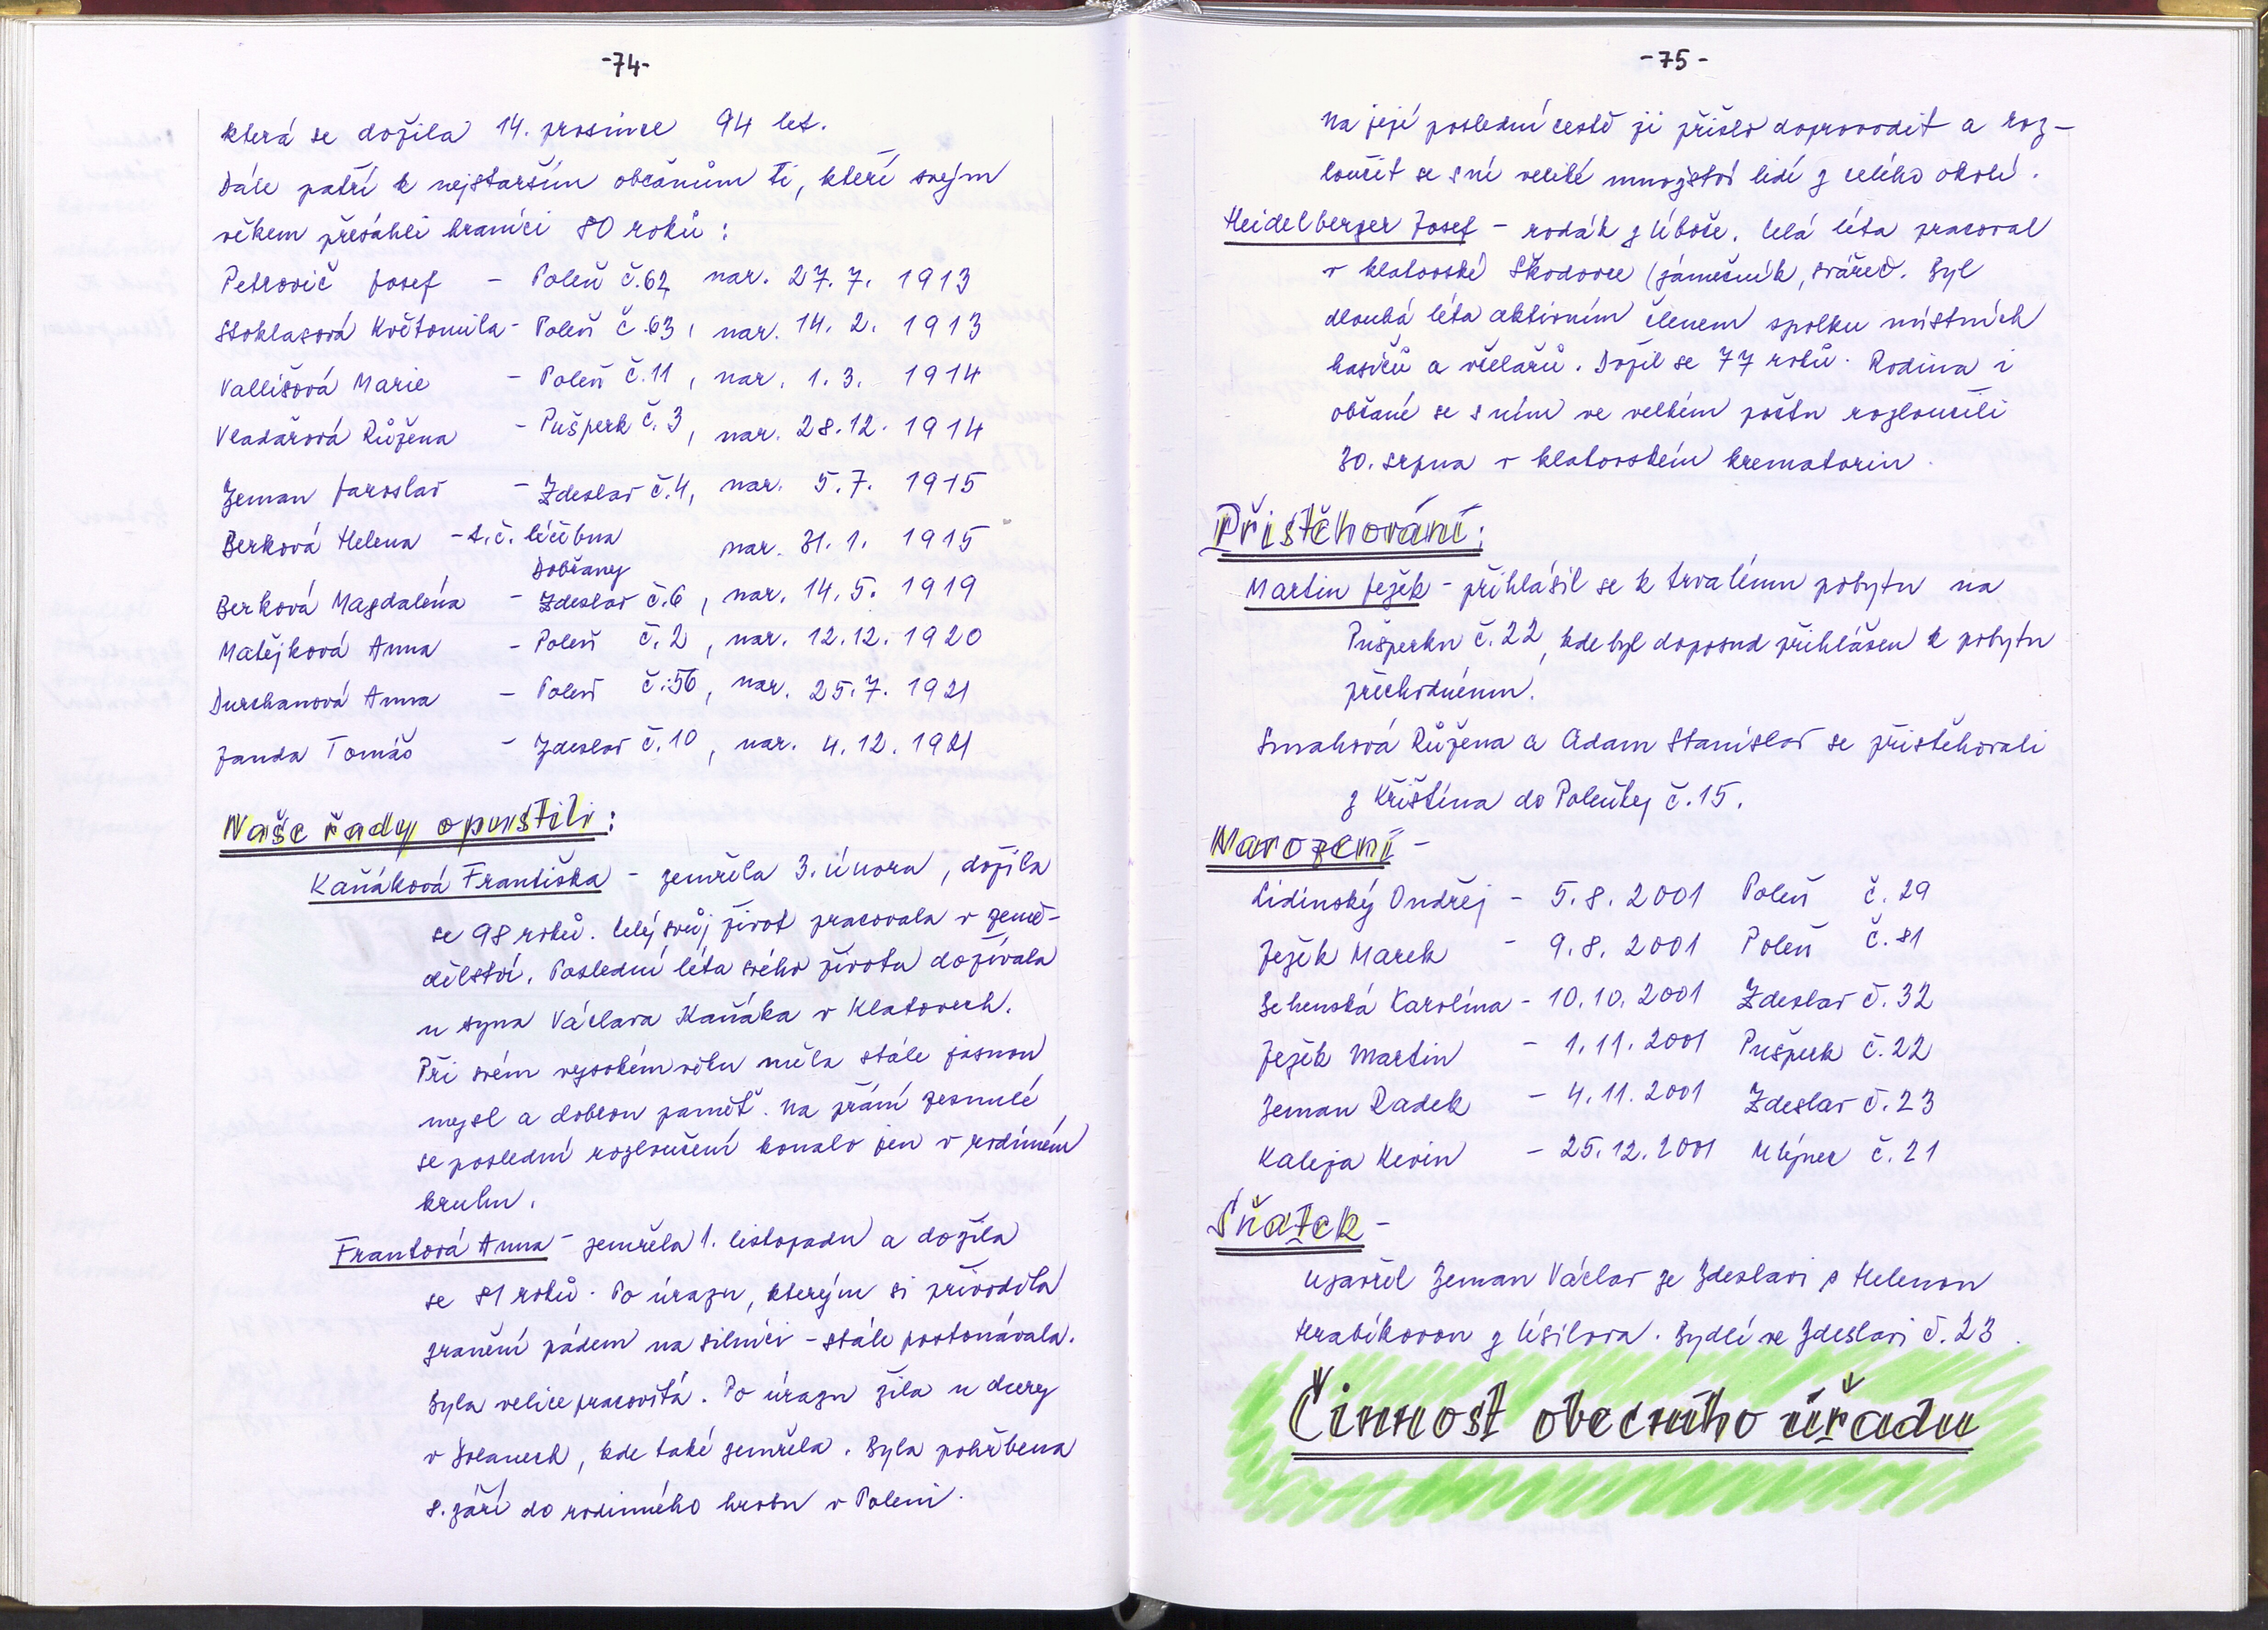 -74-
která se dožila 14. prosince 94 let.
Dále patří k nejstarším občanům ti, kteří svým
věkem přesáhli hranici 80 roků :
Petrovič Josef - Poleň č.62 nar. 27.7. 1913
Stoklasová Květomila - Poleň č.63, nar. 14.2. 1913
Vallišová Marie - Poleň č.11, nar. 1.3. 1914
Vladařová Růžena - Pušperk č.3, nar. 28.12. 1914
Zeman Jaroslav - Zdeslav č.4, nar. 5.7. 1915
Berková Helena - t.č. léčebna nar. 31.1. 1915
Dobřany
Berková Magdaléna - Zdeslav č.6, nar. 14.5. 1919
Matějková Anna - Poleň č.2, nar. 12.12. 1920
Durchanová Anna - Poleň č.56, nar. 25.7. 1921
Janda Tomáš - Zdeslav č.10, nar. 4.12. 1921
Naše řady opustili :
Kaňáková Františka - zemřela 3. února, dožila
se 98 roků. Celý svůj život pracovala v země-
dělství. Poslední léta svého života dožívala
u syna Václava Kaňáka v Klatovech.
Při svém vysokém věku měla stále jasnou
mysl a dobrou paměť. Na přání zesnulé
se poslední rozloučení konalo jen v rodiném
kruhu.
Frantová Anna - zemřela 1. listopadu a dožila
se 81 roků. Po úrazu, kterým si přivodila
zranění pádem na silnici - stále postonávala.
Byla velice pracovitá. Po úrazu žila u dcery
v Dolanech, kde také zemřela. Byla pohřbena
8. září do rodinného hrobu v Poleni.
-75-
Na její poslední cestě ji přišlo doprovodit a roz-
loučit se s ní veliké množství lidí z celého okolí.
Heidelberger Josef - rodák z Úboče. Celá léta pracoval
v klatovské Škodovce (zámečník, svářeč. Byl
dlouhá léta aktivním členem spolku místních
hasičů a včelařů. Dožil se 77 roků. Rodina i
občané se s ním ve velkém počtu rozloučili
30. srpna v klatovském krematoriu.
Přistěhování :
Martin Ježek - přihlásil se k trvalému pobytu na
Pušperku č.22, kde byl doposud přihlášen k pobytu
přechodnému.
Smahová Růžena a Adam Stanislav se přistěhovali
z Křištína do Poleňky č.15.
Narození -
Lidinský Ondřej - 5.8. 2001 Poleň č.29
Ježek Marek - 9.8. 2001 Poleň č.81
Behenská Karolína - 10.10. 2001 Zdeslav č.32
Ježek Martin - 1.11. 2001 Pušperk č.22
Zeman Radek - 4.11. 2001 Zdeslav č.23
Kaleja Kevin - 25.12. 2001 Mlýnec č.21
Sňatek -
uzavřel Zeman Václav ze Zdeslavi s Helenou
Hrabíkovou z Úsilova. Bydlí ve Zdeslavi č.23.
Činnost obecního úřadu